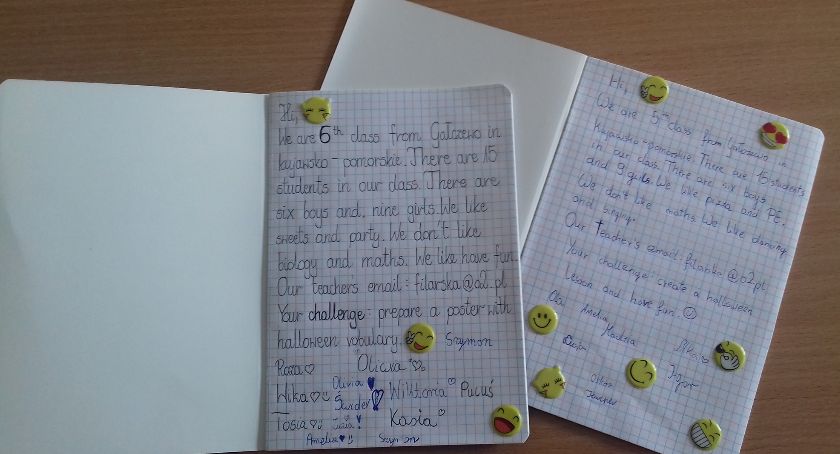 Hi,
We are 6th class from Gałazewo in
kujawsko-pomorskie. There are 15
students in our class. There are
six boys and, nine girls. We like
sweets and party. We don't like
biology and maths. We like have fun.
Our teachers email: filarska@o2.pl
Your challenge: prepare a poster with
halloween vobulary.
Szymon
Oliwia
Wika
Olivia
Wiktoria Pucuś
Tosia
Kasia
Amelia
Szymon
Hi,
We are 5th class from Gałazewo in
Kujawsko-pomorskie. There are 15 students
in our class. There are six boys
and 9 girls. We like pizza and PE.
We don't like maths. We like dancing
and singing.
Our teacher's email: filarska@o2.pl
Your challenge: create a halloween
lesson and have fun.
Ola Amelia
Nika
Igor